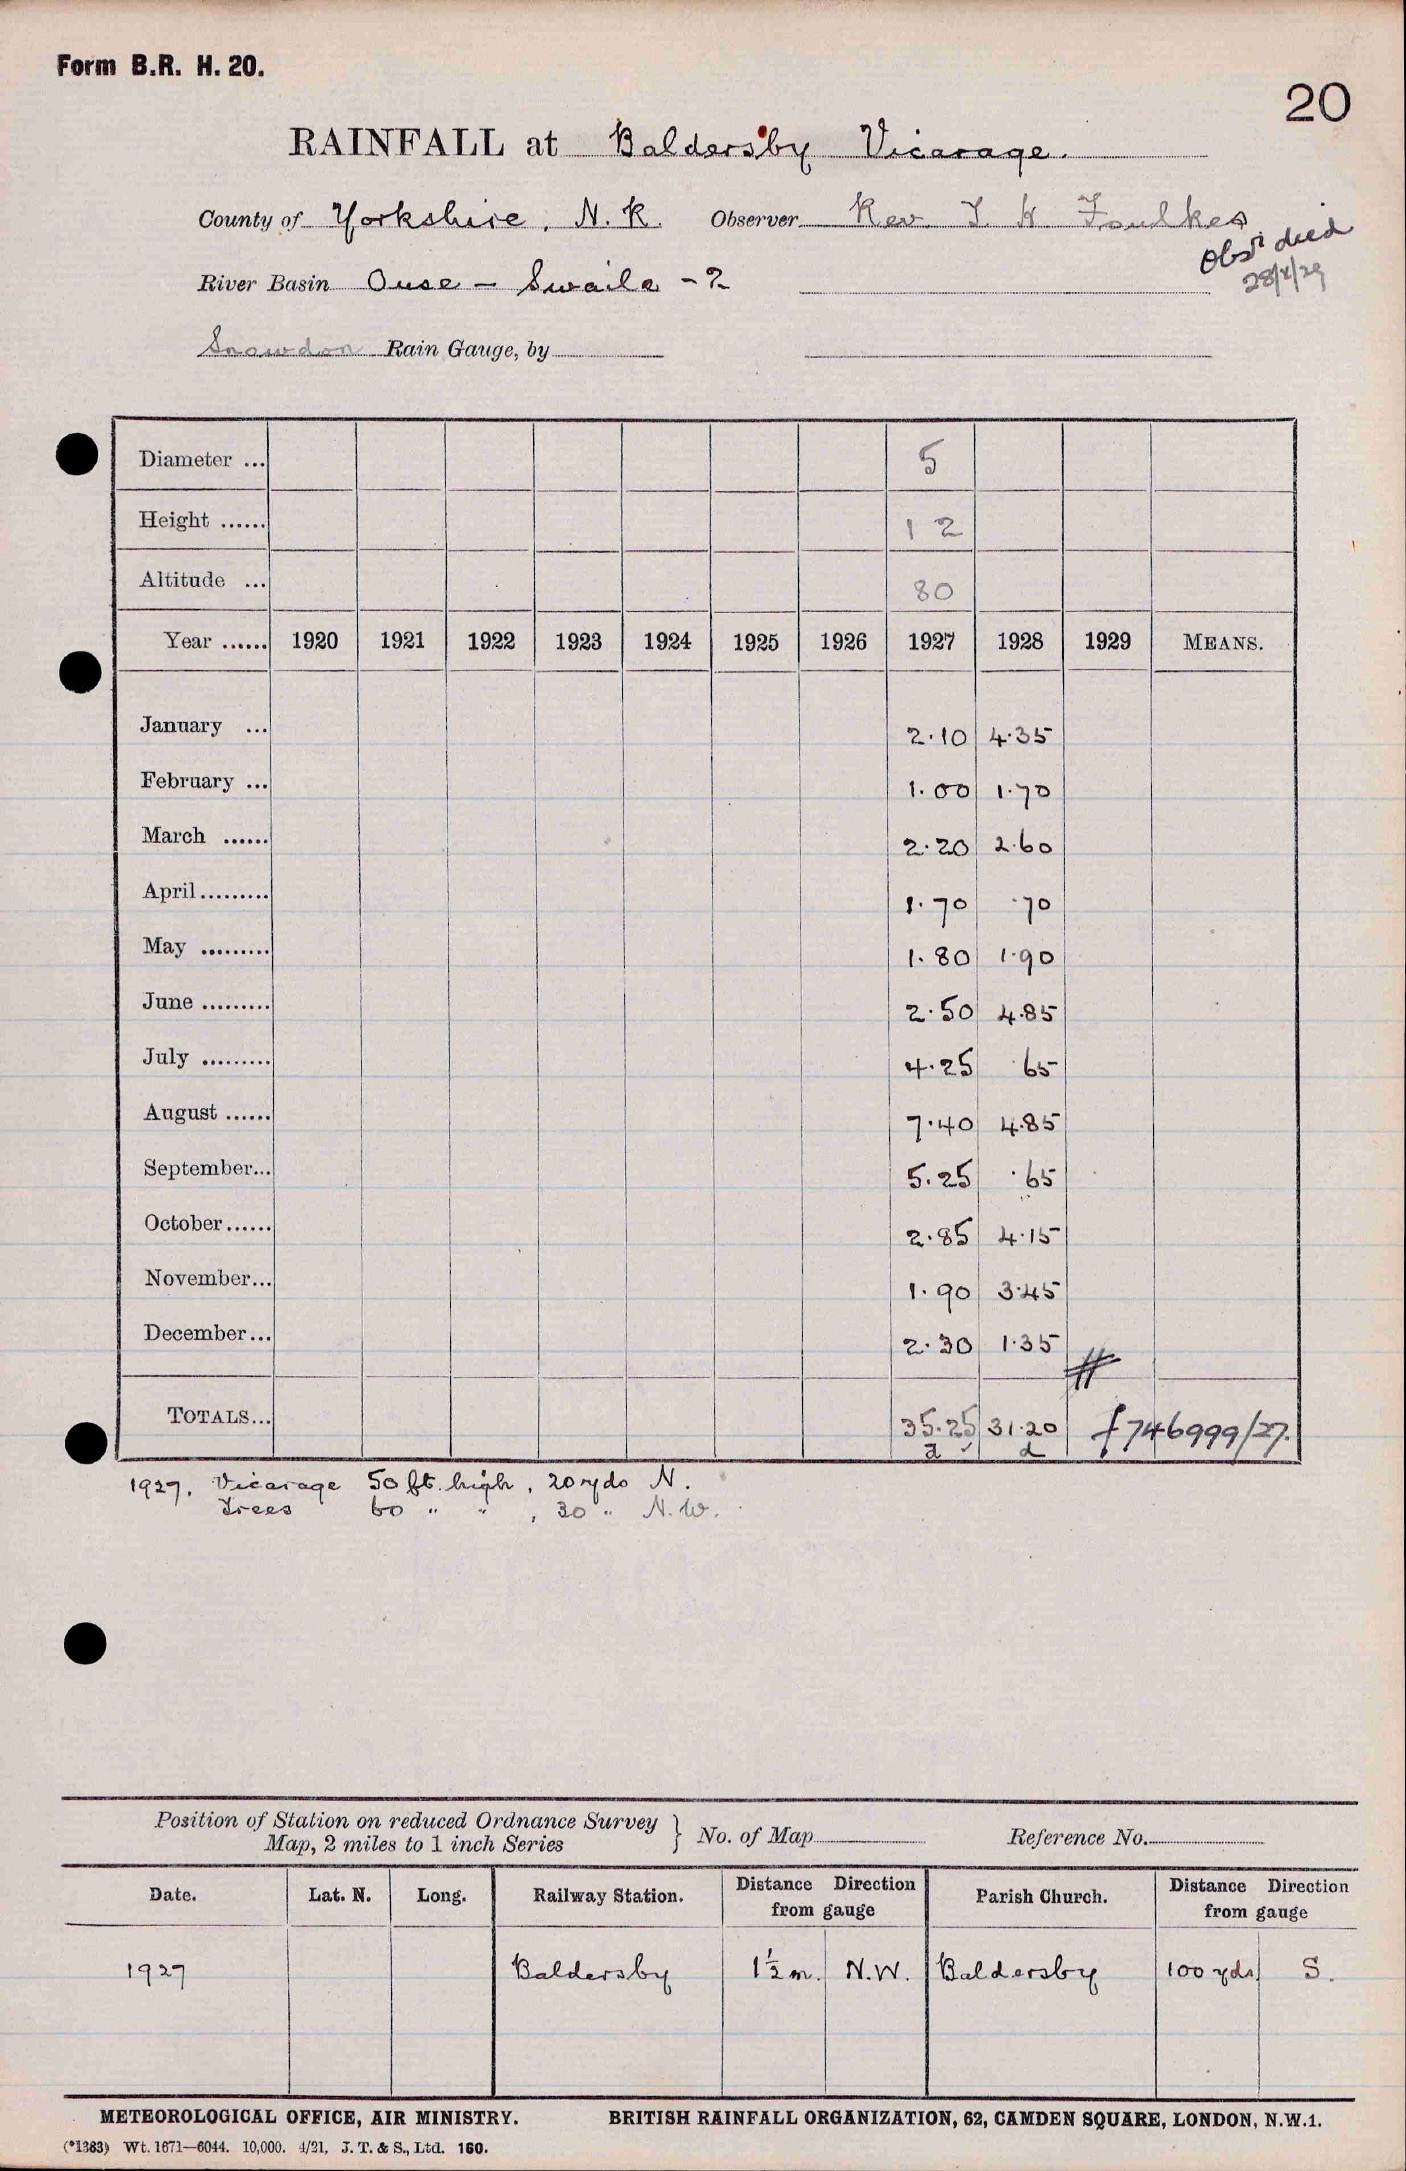 Form B.R. H. 20.
20
RAINFALL at Baldersby Vicarage.
County of Yorkshire, N.R. Observer Rev. T. H. Foulkes
Obsr died
28/1/29
River Basin Ouse - Swaile - 2
Snowdon Rain Gauge, by
Diameter ... 5
Height ...... 12
Altitude ... 80
Year ...... 1920 1921 1922 1923 1924 1925 1926 1927 1928 1929 MEANS.
January ... 2.10 4.35
February ... 1.00 1.70
March ...... 2.20 2.60
April ......... 1.70 .70
May ......... 1.80 1.90
June ......... 2.50 4.85
July ......... 4.25 .65
August ...... 7.40 4.85
September... 5.25 .65
October...... 2.85 4.15
November... 1.90 3.45
December... 2.30 1.35
TOTALS... 35.25 31.20 f746999/27.
d ✓ d
1927. Vicarage 50 ft. high, 20 yds N.
Trees 60 " " , 30 " N.W.
Position of Station on reduced Ordnance Survey
Map, 2 miles to 1 inch Series } No. of Map Reference No.
Date. Lat. N. Long. Railway Station. Distance Direction from gauge Parish Church. Distance Direction from gauge
1927 Baldersby 1½ m. N.W. Baldersby 100 yds S.
METEOROLOGICAL OFFICE, AIR MINISTRY. BRITISH RAINFALL ORGANIZATION, 62, CAMDEN SQUARE, LONDON, N.W.1.
(*1383) Wt. 1671—6044. 10,000. 4/21. J. T. & S., Ltd. 160.